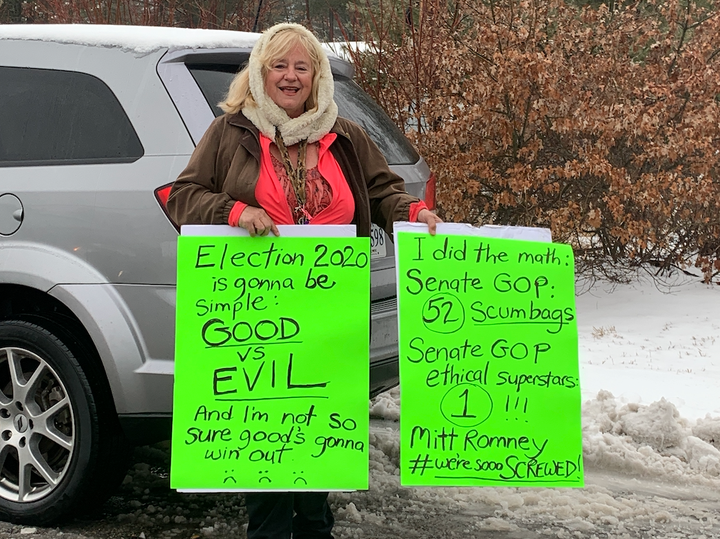 Election 2020
is gonna be
simple:
GOOD
vs
EVIL
And I'm not so
sure good's gonna
win out
I did the math:
Senate GOP:
52 Scumbags
Senate GOP
ethical superstars:
1 !!!
Mitt Romney
#we're sooo SCREWED!